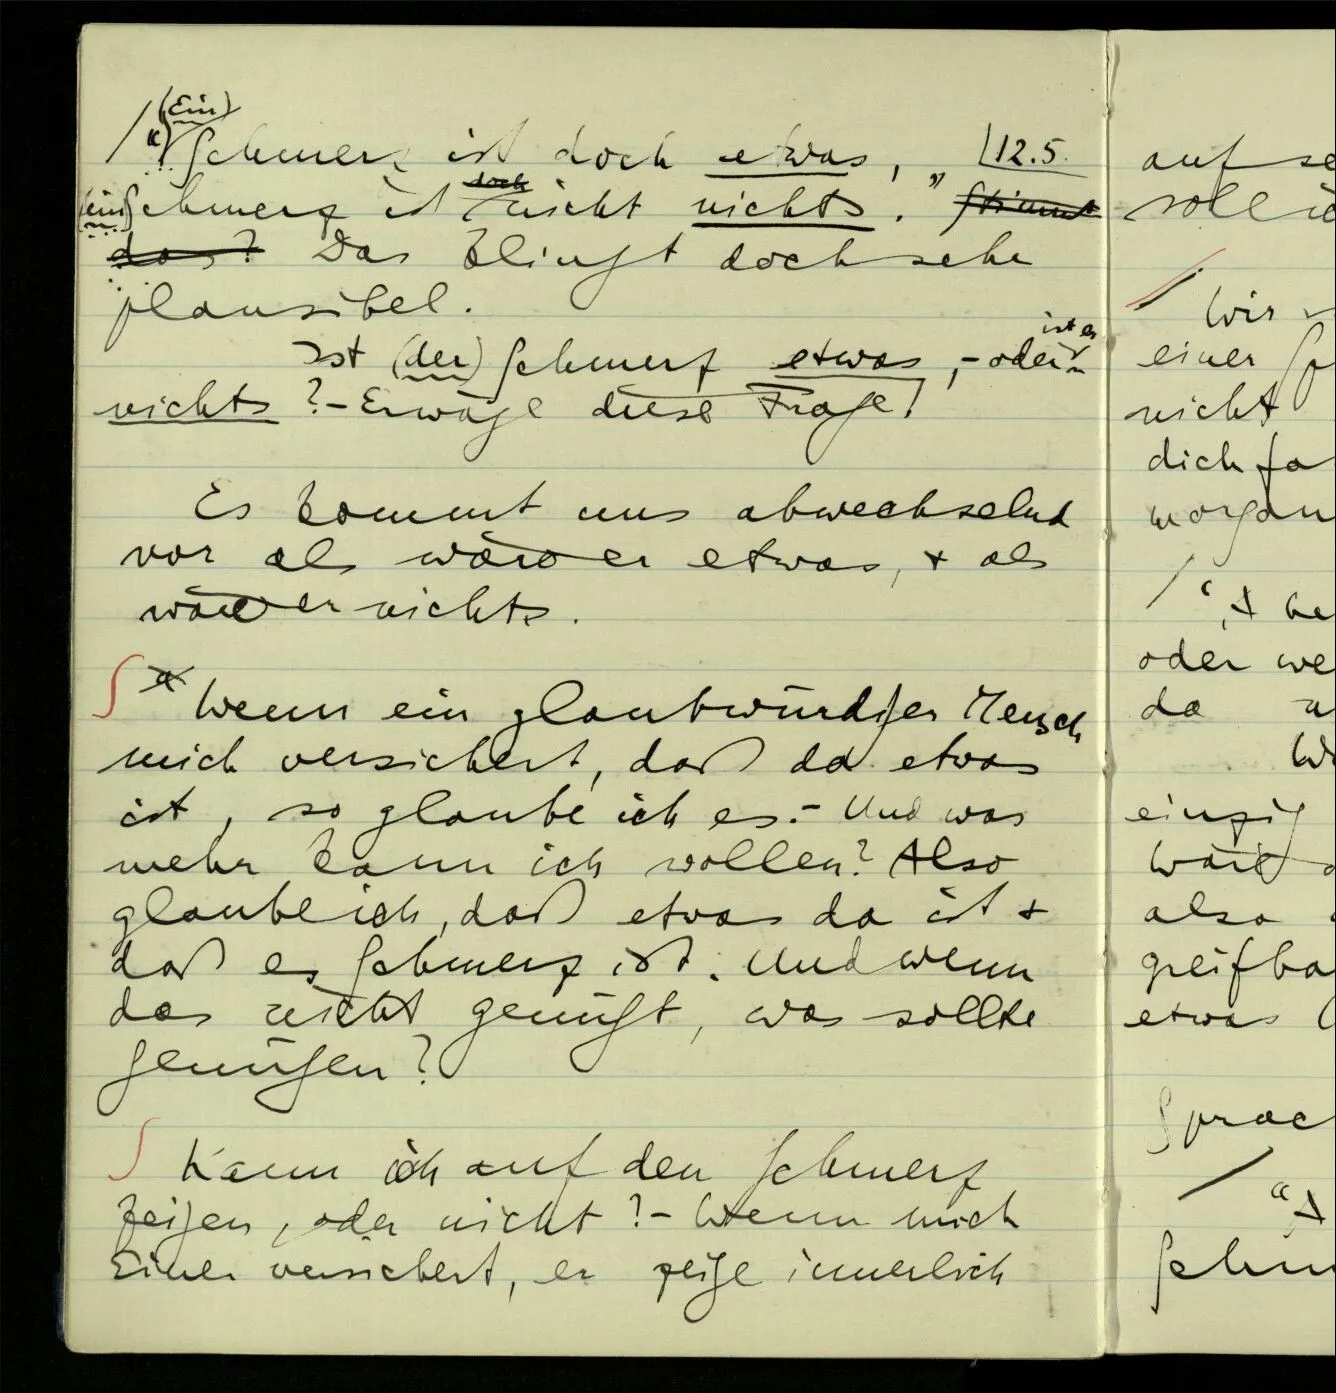 (Ein)
/ "Schmerz ist doch etwas, 12.5.
(ein) Schmerz ist doch nicht nichts." Stimmt
das? Das klingt doch sehr
plausibel.
ist er
Ist (der) Schmerz etwas, – oder
nichts? – Erwäge diese Frage!
Es kommt uns abwechselnd
vor als wäre er etwas, + als
wäre er nichts.
∫ Wenn ein glaubwürdiger Mensch
mich versichert, daß da etwas
ist, so glaube ich es. – Und was
mehr kann ich wollen? Also
glaube ich, daß etwas da ist +
daß es Schmerz ist. Und wenn
das nicht genügt, was sollte
genügen?
∫ Kann ich auf den Schmerz
zeigen, oder nicht? – Wenn mich
Einer versichert, er zeige innerlich
auf se
soll i
/ Wir
einer Sp
nicht
dich fa
morgen
/ "A he
oder we
da
W
einzig
wäre
also
greifba
etwas
Sprac
/ "A
Schm